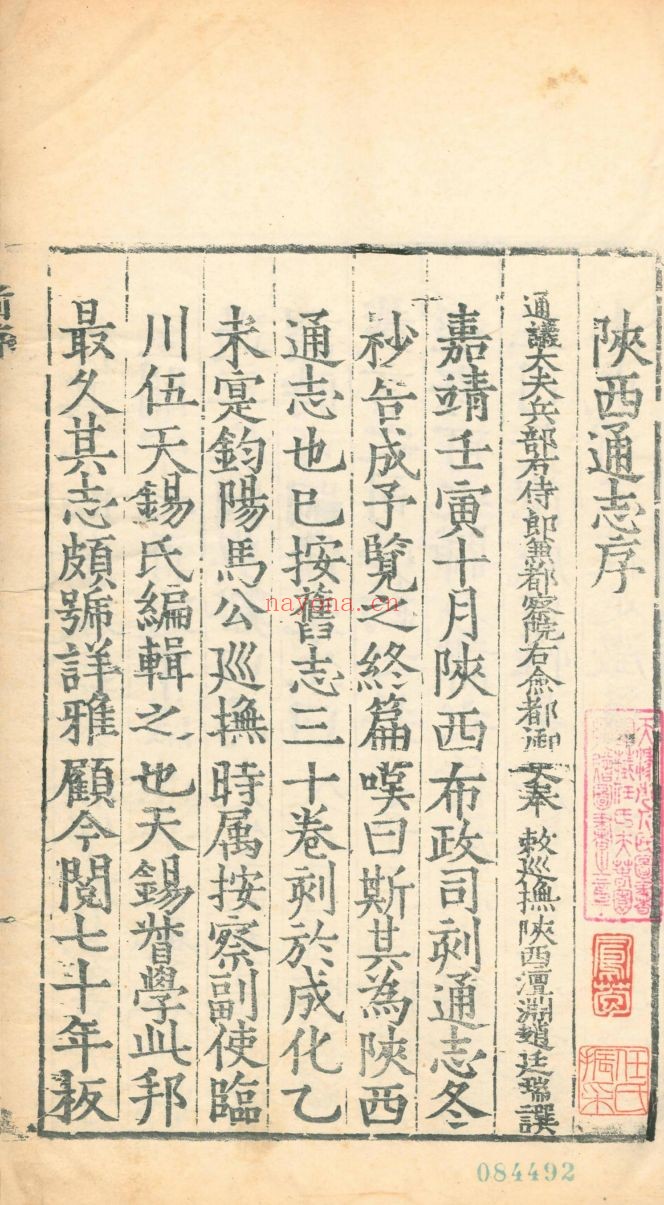 陝西通志序
通議大夫兵部右侍郎兼都察院右僉都御史奉 敕巡撫陝西澶淵趙廷瑞譔
嘉靖壬寅十月陝西布政司刻通志冬
秒告成予覽之終篇嘆曰斯其為陝西
通志也已按舊志三十卷刻於成化乙
未寔鈞陽馬公巡撫時属按察副使臨
川伍天錫氏編輯之也天錫督學此邦
最久其志頗號詳雅顧今閱七十年板
鳳苞
任氏振采
nayona.cn
084492